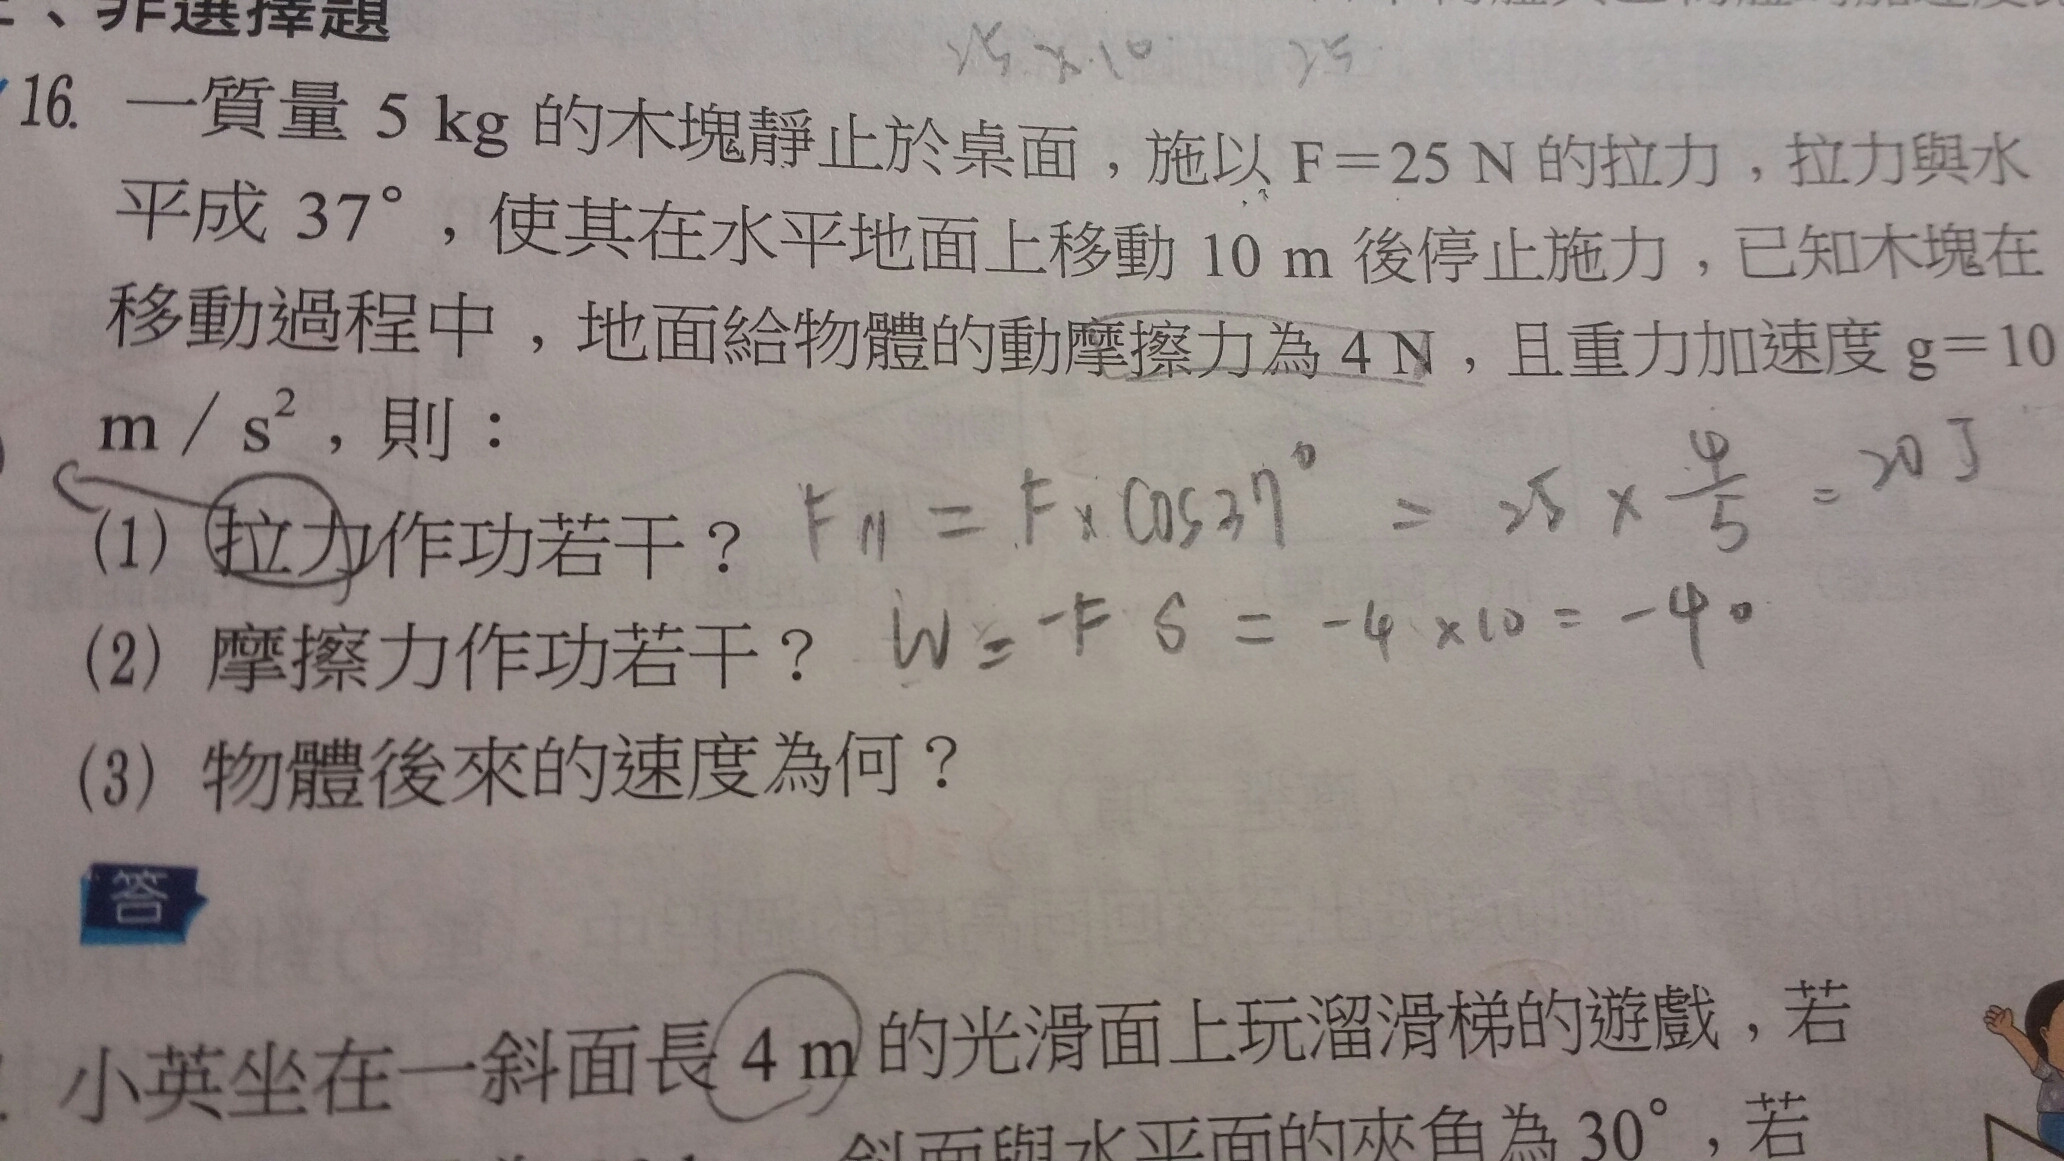 、非選擇題
25 × 10 25
16. 一質量 5 kg 的木塊靜止於桌面，施以 F＝25 N 的拉力，拉力與水
平成 37°，使其在水平地面上移動 10 m 後停止施力，已知木塊在
移動過程中，地面給物體的動摩擦力為 4 N，且重力加速度 g＝10
m / s²，則：
(1) 拉力作功若干？ F// = F × cos37° = 25 × 4/5 = 20 J
(2) 摩擦力作功若干？ W = -F S = -4 × 10 = -40
(3) 物體後來的速度為何？
答
小英坐在一斜面長 4 m 的光滑面上玩溜滑梯的遊戲，若
斜面與水平面的夾角為 30°，若